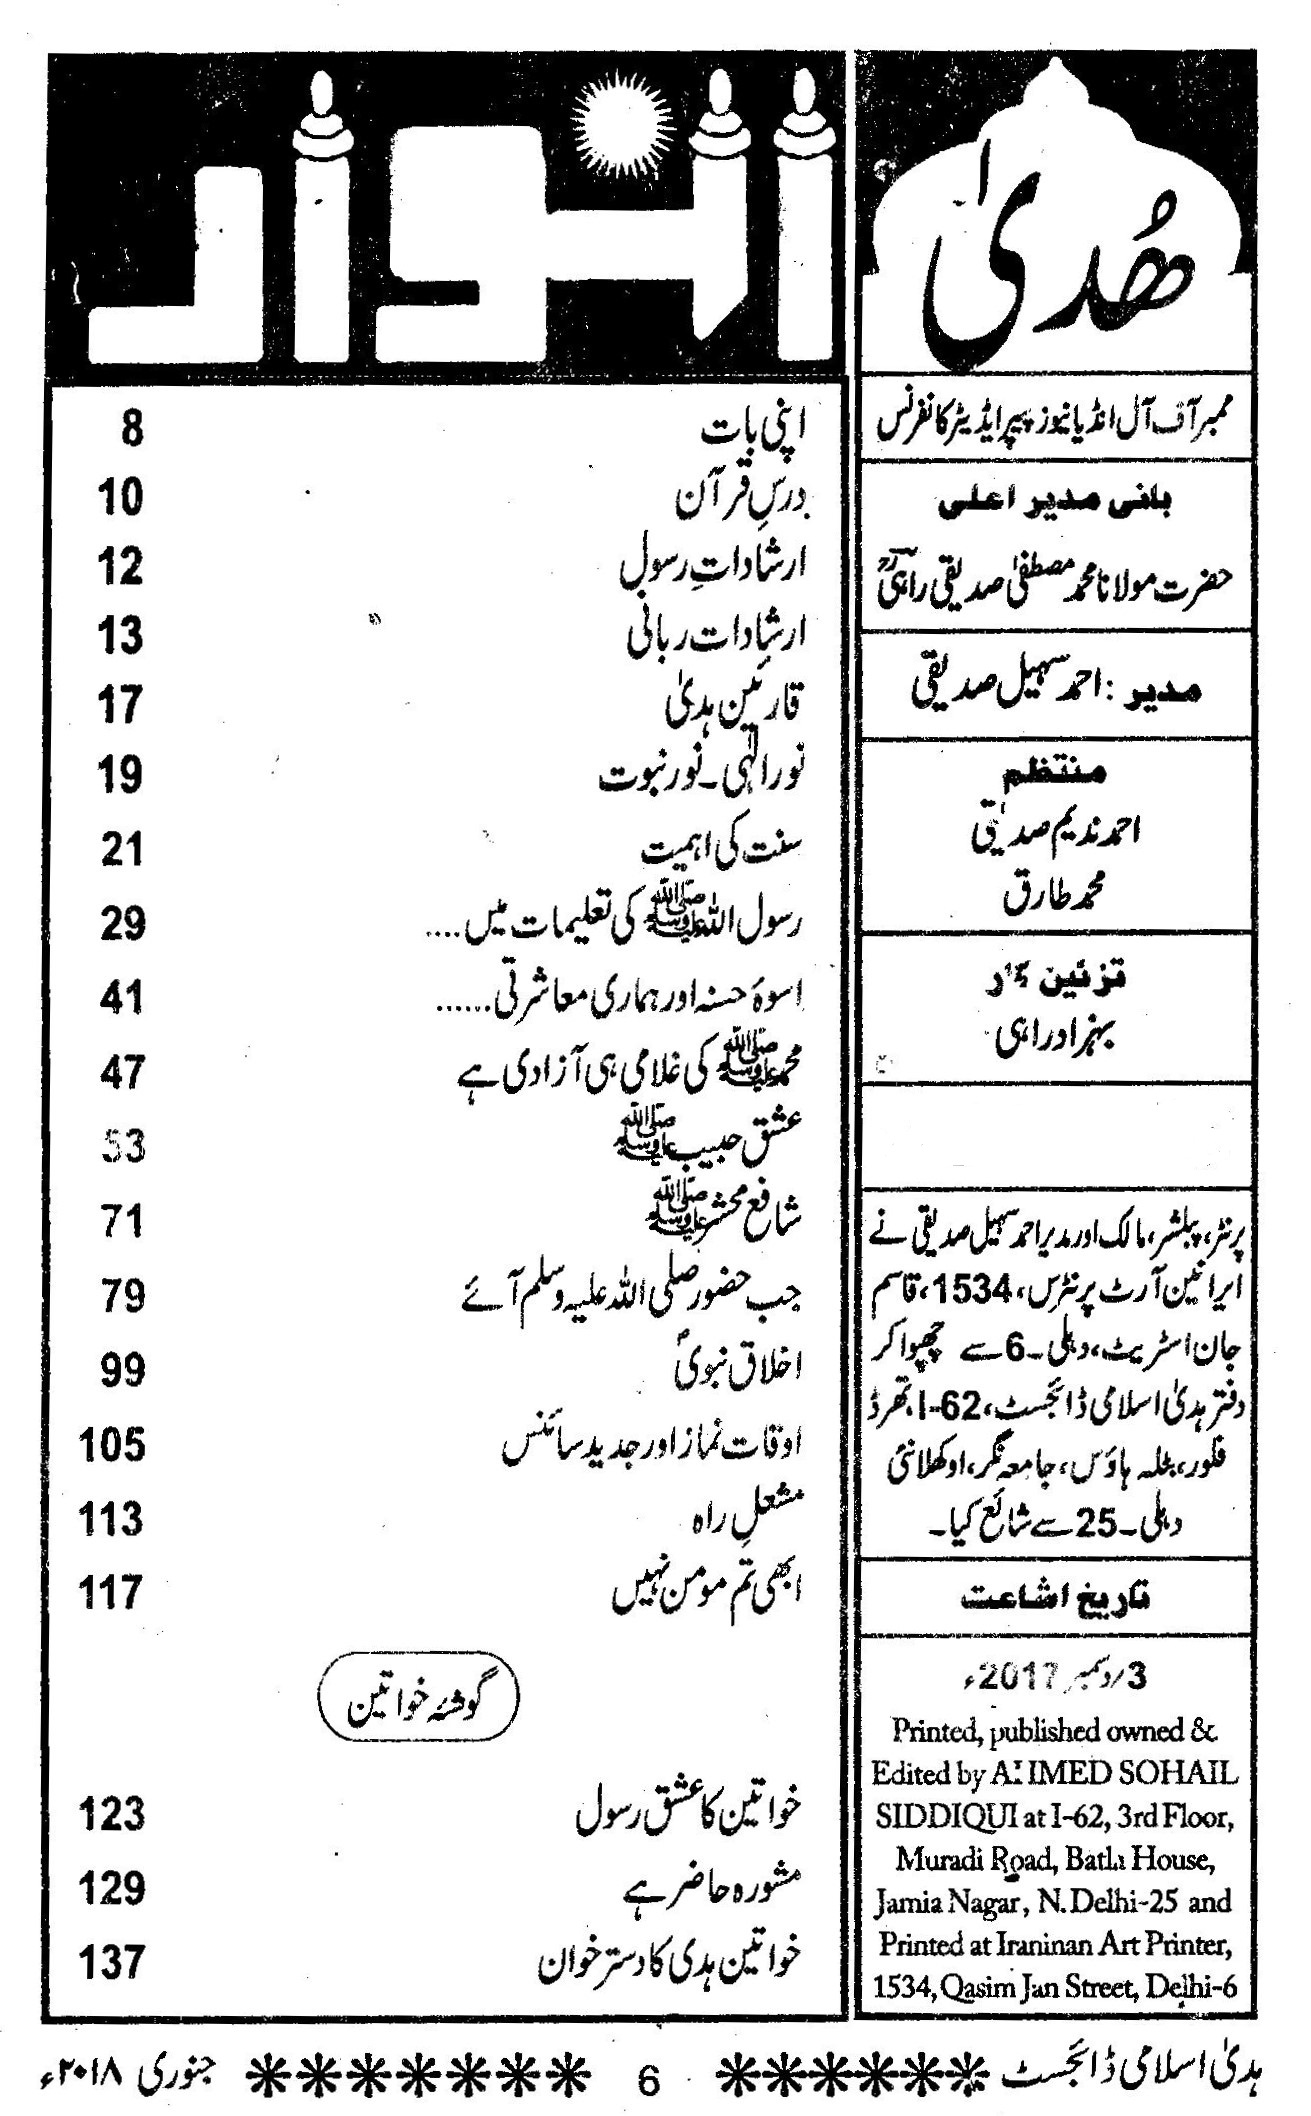 ھُدیٰ
ممبر آف آل انڈیا نیوز پیپر ایڈیٹر کانفرنس
بانی مدیر اعلی
حضرت مولانا محمد مصطفیٰ صدیقی راہیؒ
مدیر : احمد سہیل صدیقی
منتظم
احمد ندیم صدیقی
محمد طارق
تزئین کار
بہزاد راہی
پرنٹر، پبلشر، مالک اور مدیر احمد سہیل صدیقی نے
ایرانین آرٹ پرنٹرس، 1534، قاسم
جان اسٹریٹ، دہلی۔6 سے چھپوا کر
دفتر ہدیٰ اسلامی ڈائجسٹ، I-62، تھرڈ
فلور، بٹلہ ہاؤس، جامعہ نگر، اوکھلا نئی
دہلی۔25 سے شائع کیا۔
تاریخ اشاعت
3/دسمبر 2017ء
Printed, published owned &
Edited by AHMED SOHAIL
SIDDIQUI at I-62, 3rd Floor,
Muradi Road, Batla House,
Jamia Nagar, N.Delhi-25 and
Printed at Iraninan Art Printer,
1534, Qasim Jan Street, Delhi-6
انوار
اپنی بات 8
درسِ قرآن 10
ارشاداتِ رسول 12
ارشادات ربانی 13
قارئین ہدیٰ 17
نور الٰہی۔نور نبوت 19
سنت کی اہمیت 21
رسول اللہ ﷺ کی تعلیمات میں.... 29
اسوۂ حسنہ اور ہماری معاشرتی...... 41
محمد ﷺ کی غلامی ہی آزادی ہے 47
عشق حبیب ﷺ 53
شافع محشر ﷺ 71
جب حضور صلی اللہ علیہ وسلم آئے 79
اخلاق نبویؐ 99
اوقات نماز اور جدید سائنس 105
مشعلِ راہ 113
ابھی تم مومن نہیں 117
گوشۂ خواتین
خواتین کا عشق رسول 123
مشورہ حاضر ہے 129
خواتین ہدی کا دستر خوان 137
ہدیٰ اسلامی ڈائجسٹ 6 جنوری ۲۰۱۸ء